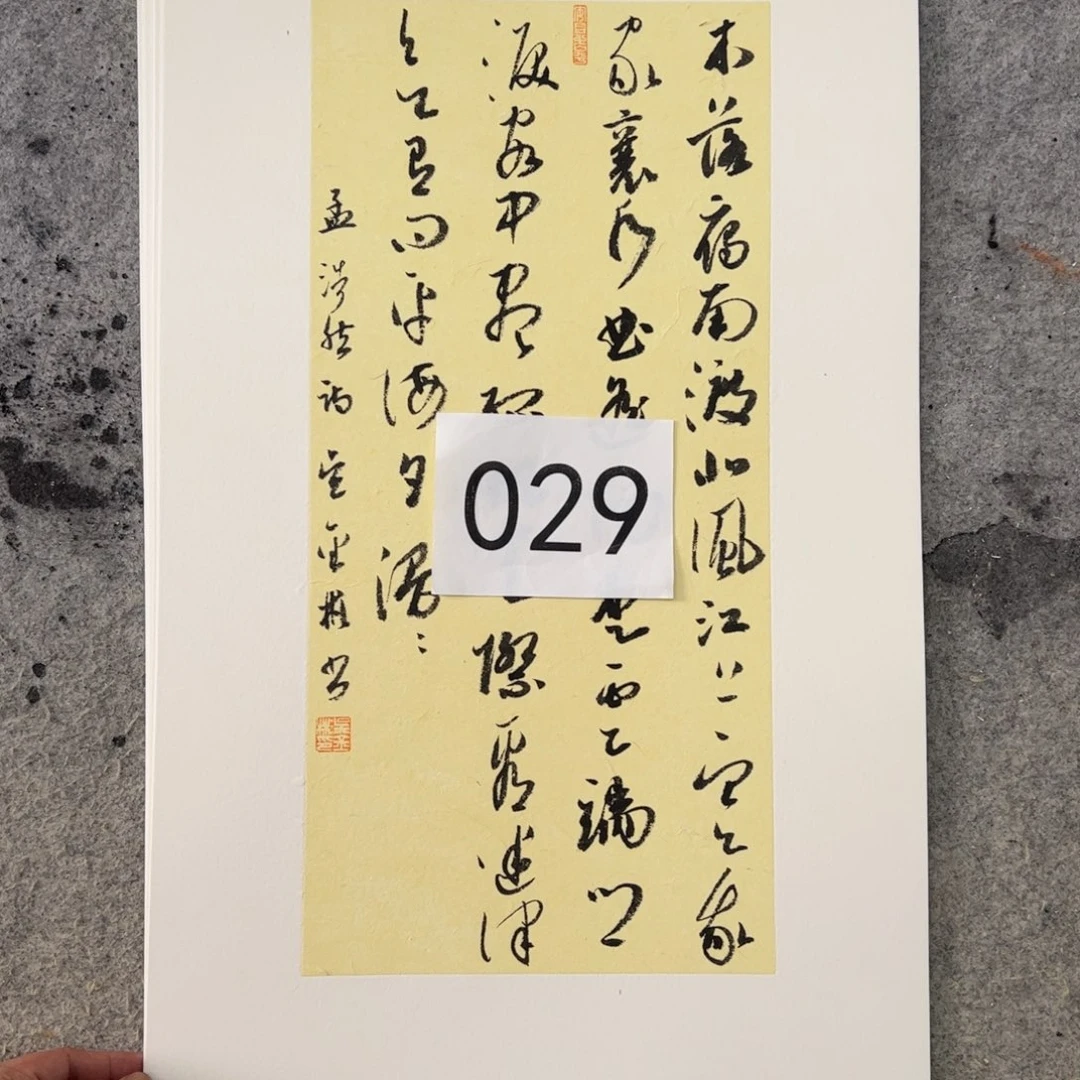 木落鴈南渡北風江上寒我
家襄水曲楚雲端鄉
淚客中盡際看迷津
欲有問平海夕漫〻
孟浩然詩書
029